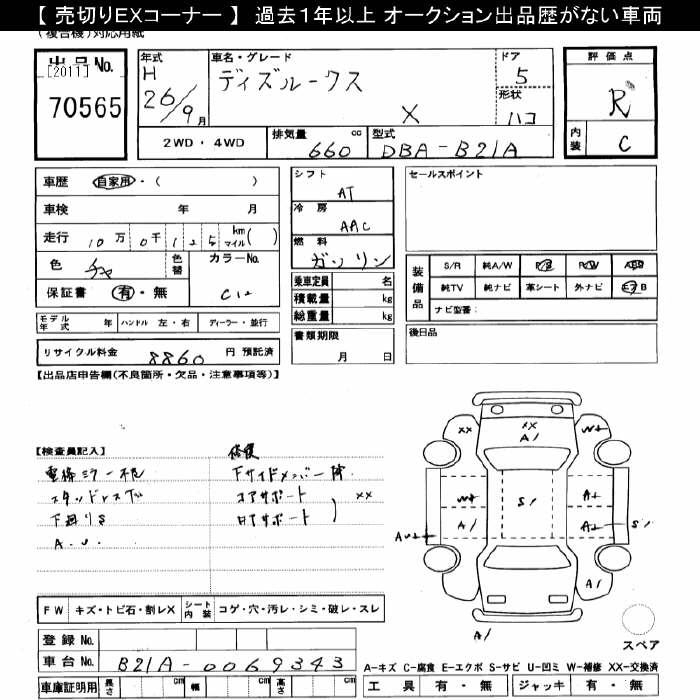 【 売切りEXコーナー 】 過去1年以上 オークション出品歴がない車両
(複合機)対応用紙
出品No.
[2011]
70565
年式
H
26/9月
車名・グレード
ディズルークス
X
ドア
5
形状
ハコ
2WD・4WD
排気量 660 cc
型式 DBA-B21A
評価点
R
内装 C
車歴 自家用・( )
車検 年 月
走行 10万 0千 125 km マイル( )
色 チャ 色替
カラーNo. C12
保証書 有・無
モデル年式 年 ハンドル 左・右 ディーラー・並行
リサイクル料金 8860 円 預託済
シフト
AT
冷房
AAC
燃料
ガソリン
乗車定員 名
積載量 kg
総重量 kg
書類期限
月 日
セールスポイント
装備品
S/R 純A/W P/S P/W ABS
純TV 純ナビ 革シート 外ナビ エアB
ナビ型番:
後日品
【出品店申告欄(不良箇所・欠品・注意事項等)】
【検査員記入】
電格ミラー不良
スタッドレス下
下廻りS
A.U.
修復
Fサイドメンバー
コアサポート XX
サポート
XX
XX
A1
S1
A1
A1
S1
A1
A1
スペア
FW キズ・トビ石・割レX シート内装 コゲ・穴・汚レ・シミ・破レ・スレ
登録No.
車台No. B21A-0069343
車庫証明用 長さ cm 幅 cm 高さ cm
A-キズ C-腐食 E-エクボ S-サビ U-凹ミ W-補修 XX-交換済
工具 有・無 ジャッキ 有・無